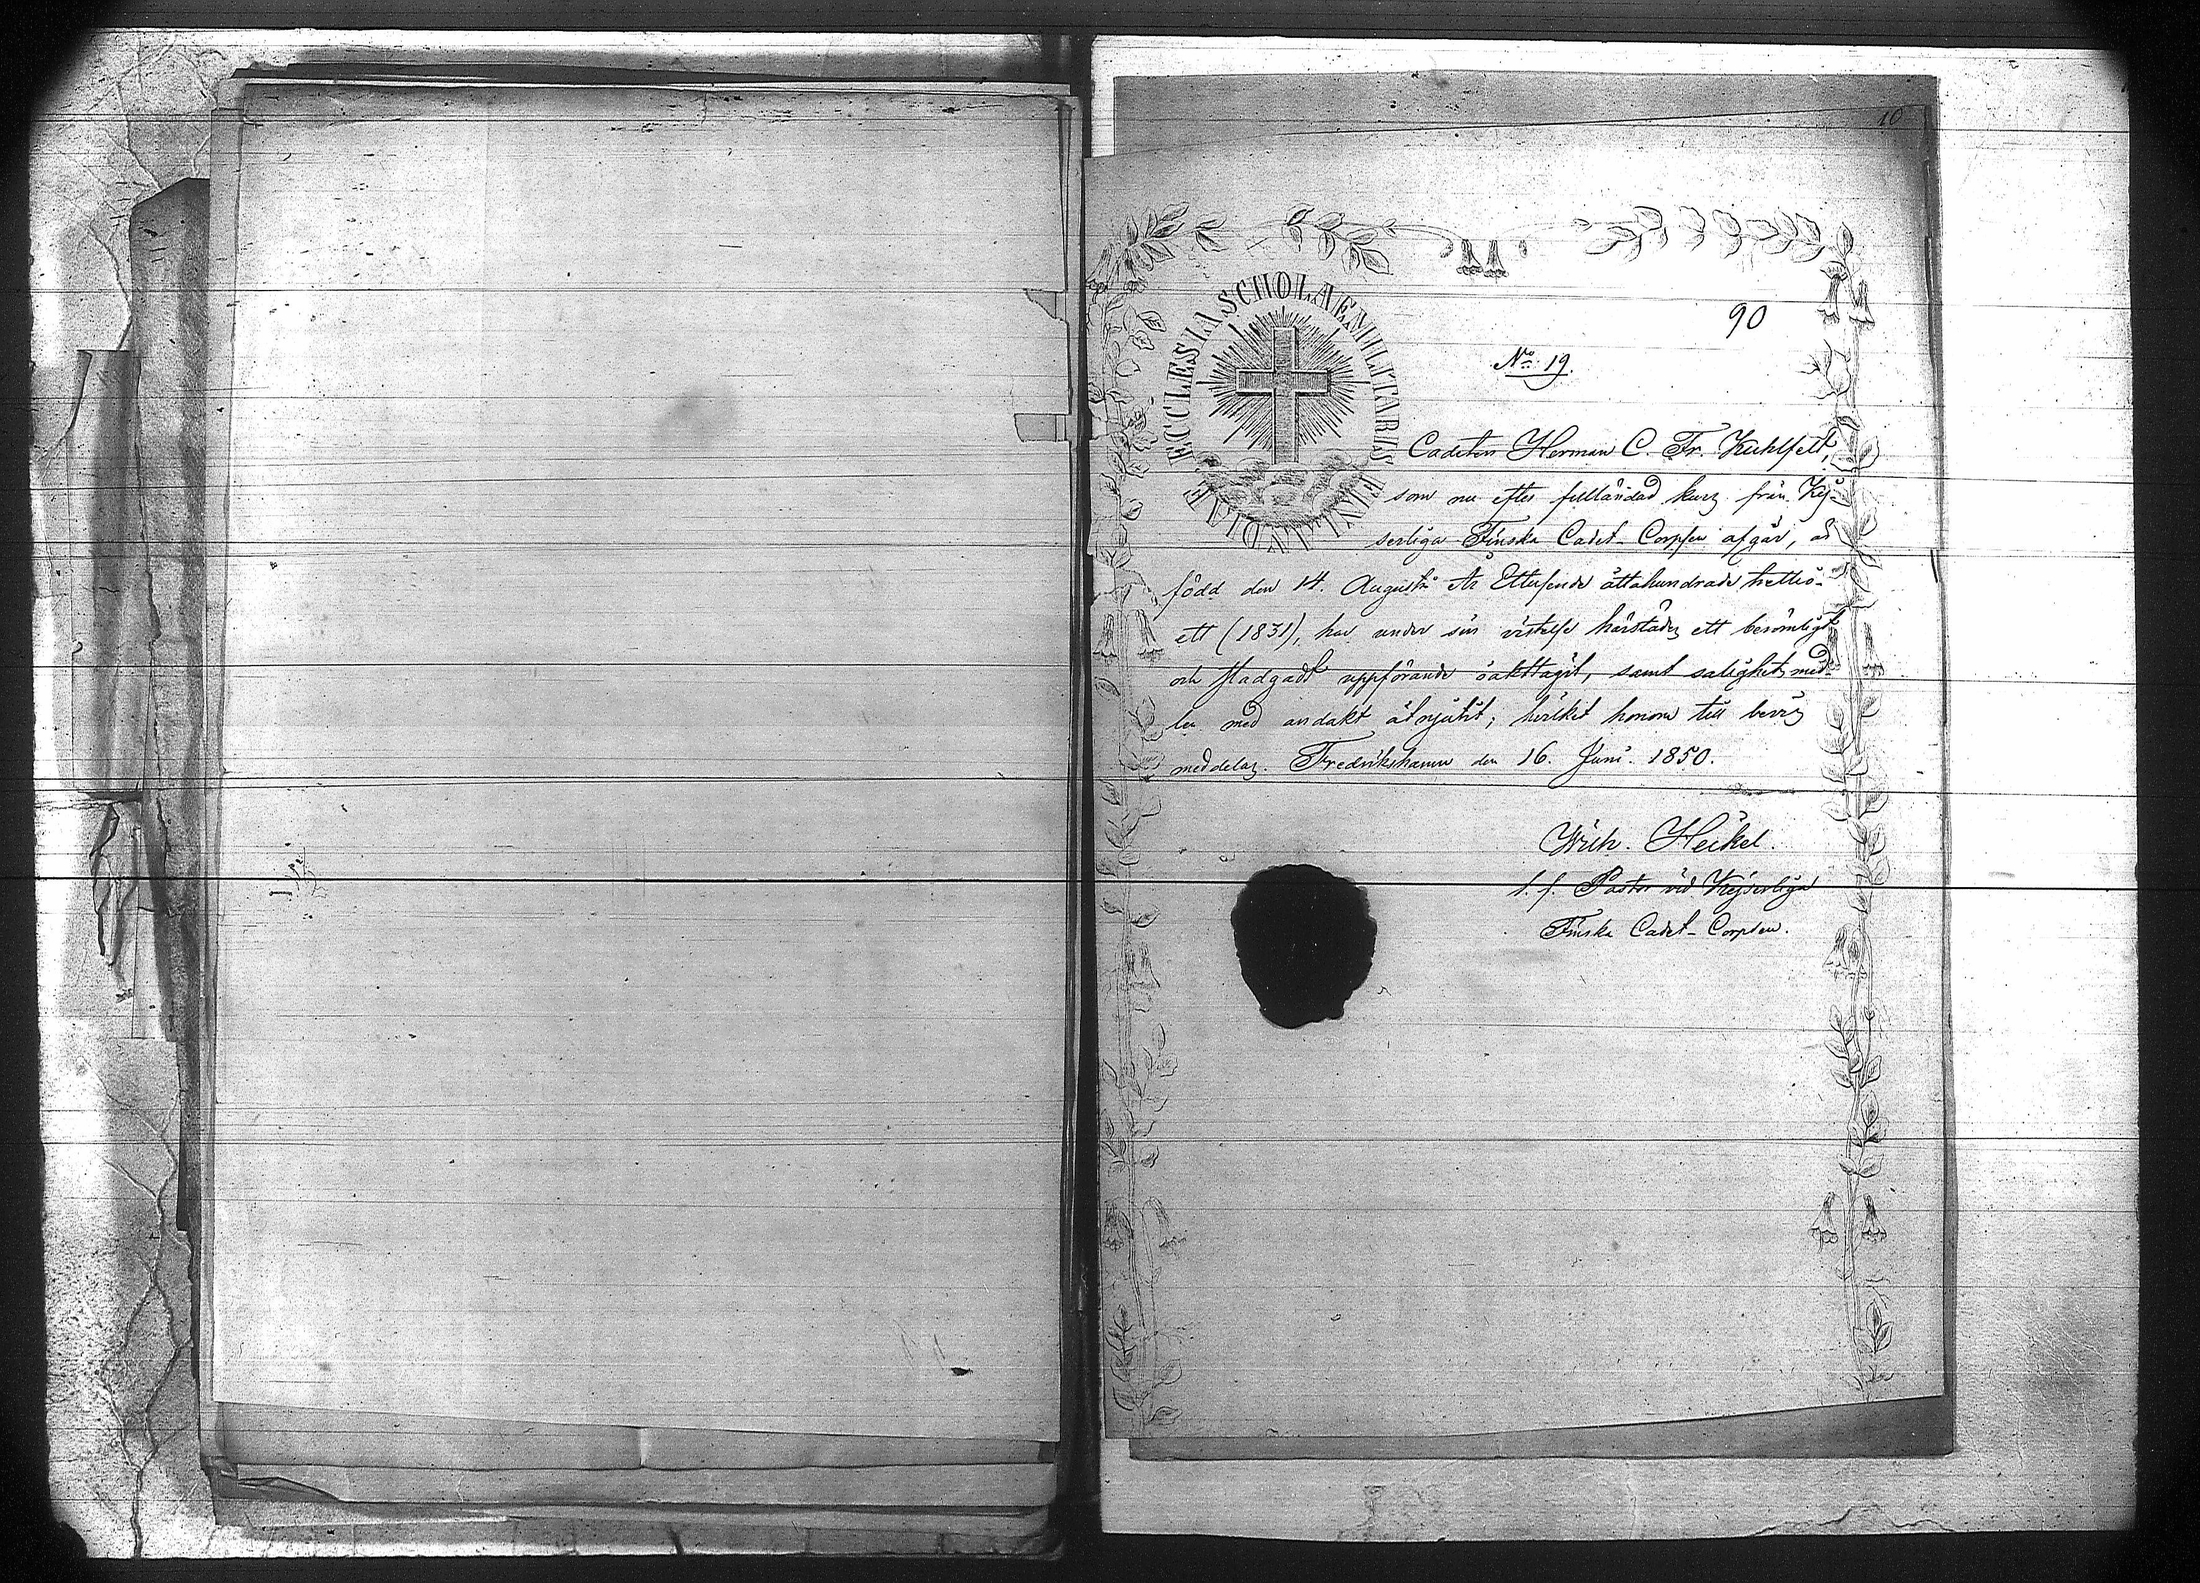 10
90
ECCLESIA SCHOLAE MILITARIS FINLANDIAE
No: 19.
Cadetten Herman C. Fr. Kuhlfelt,
som nu efter fulländad kurs från Kej-
serliga Finska Cadet-Corpsen afgår, är
född den 14. Augusti År Ettusende åttahundrade trettio-
ett (1831), har under sin vistelse härstädes ett berömligt
och stadgadt uppförande iakttagit, samt salighetsmed-
len med andakt åtnjutit; hvilket honom till bevis
meddelas. Fredrikshamn den 16. Juni. 1850.
Wilh. Heikel.
t. f. Pastor vid Kejserliga
Finska Cadet-Corpsen.